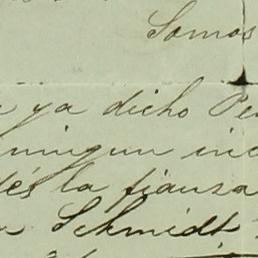 Somos
ya dicho Pe
ningun inc
dés la fianza
Schmidt